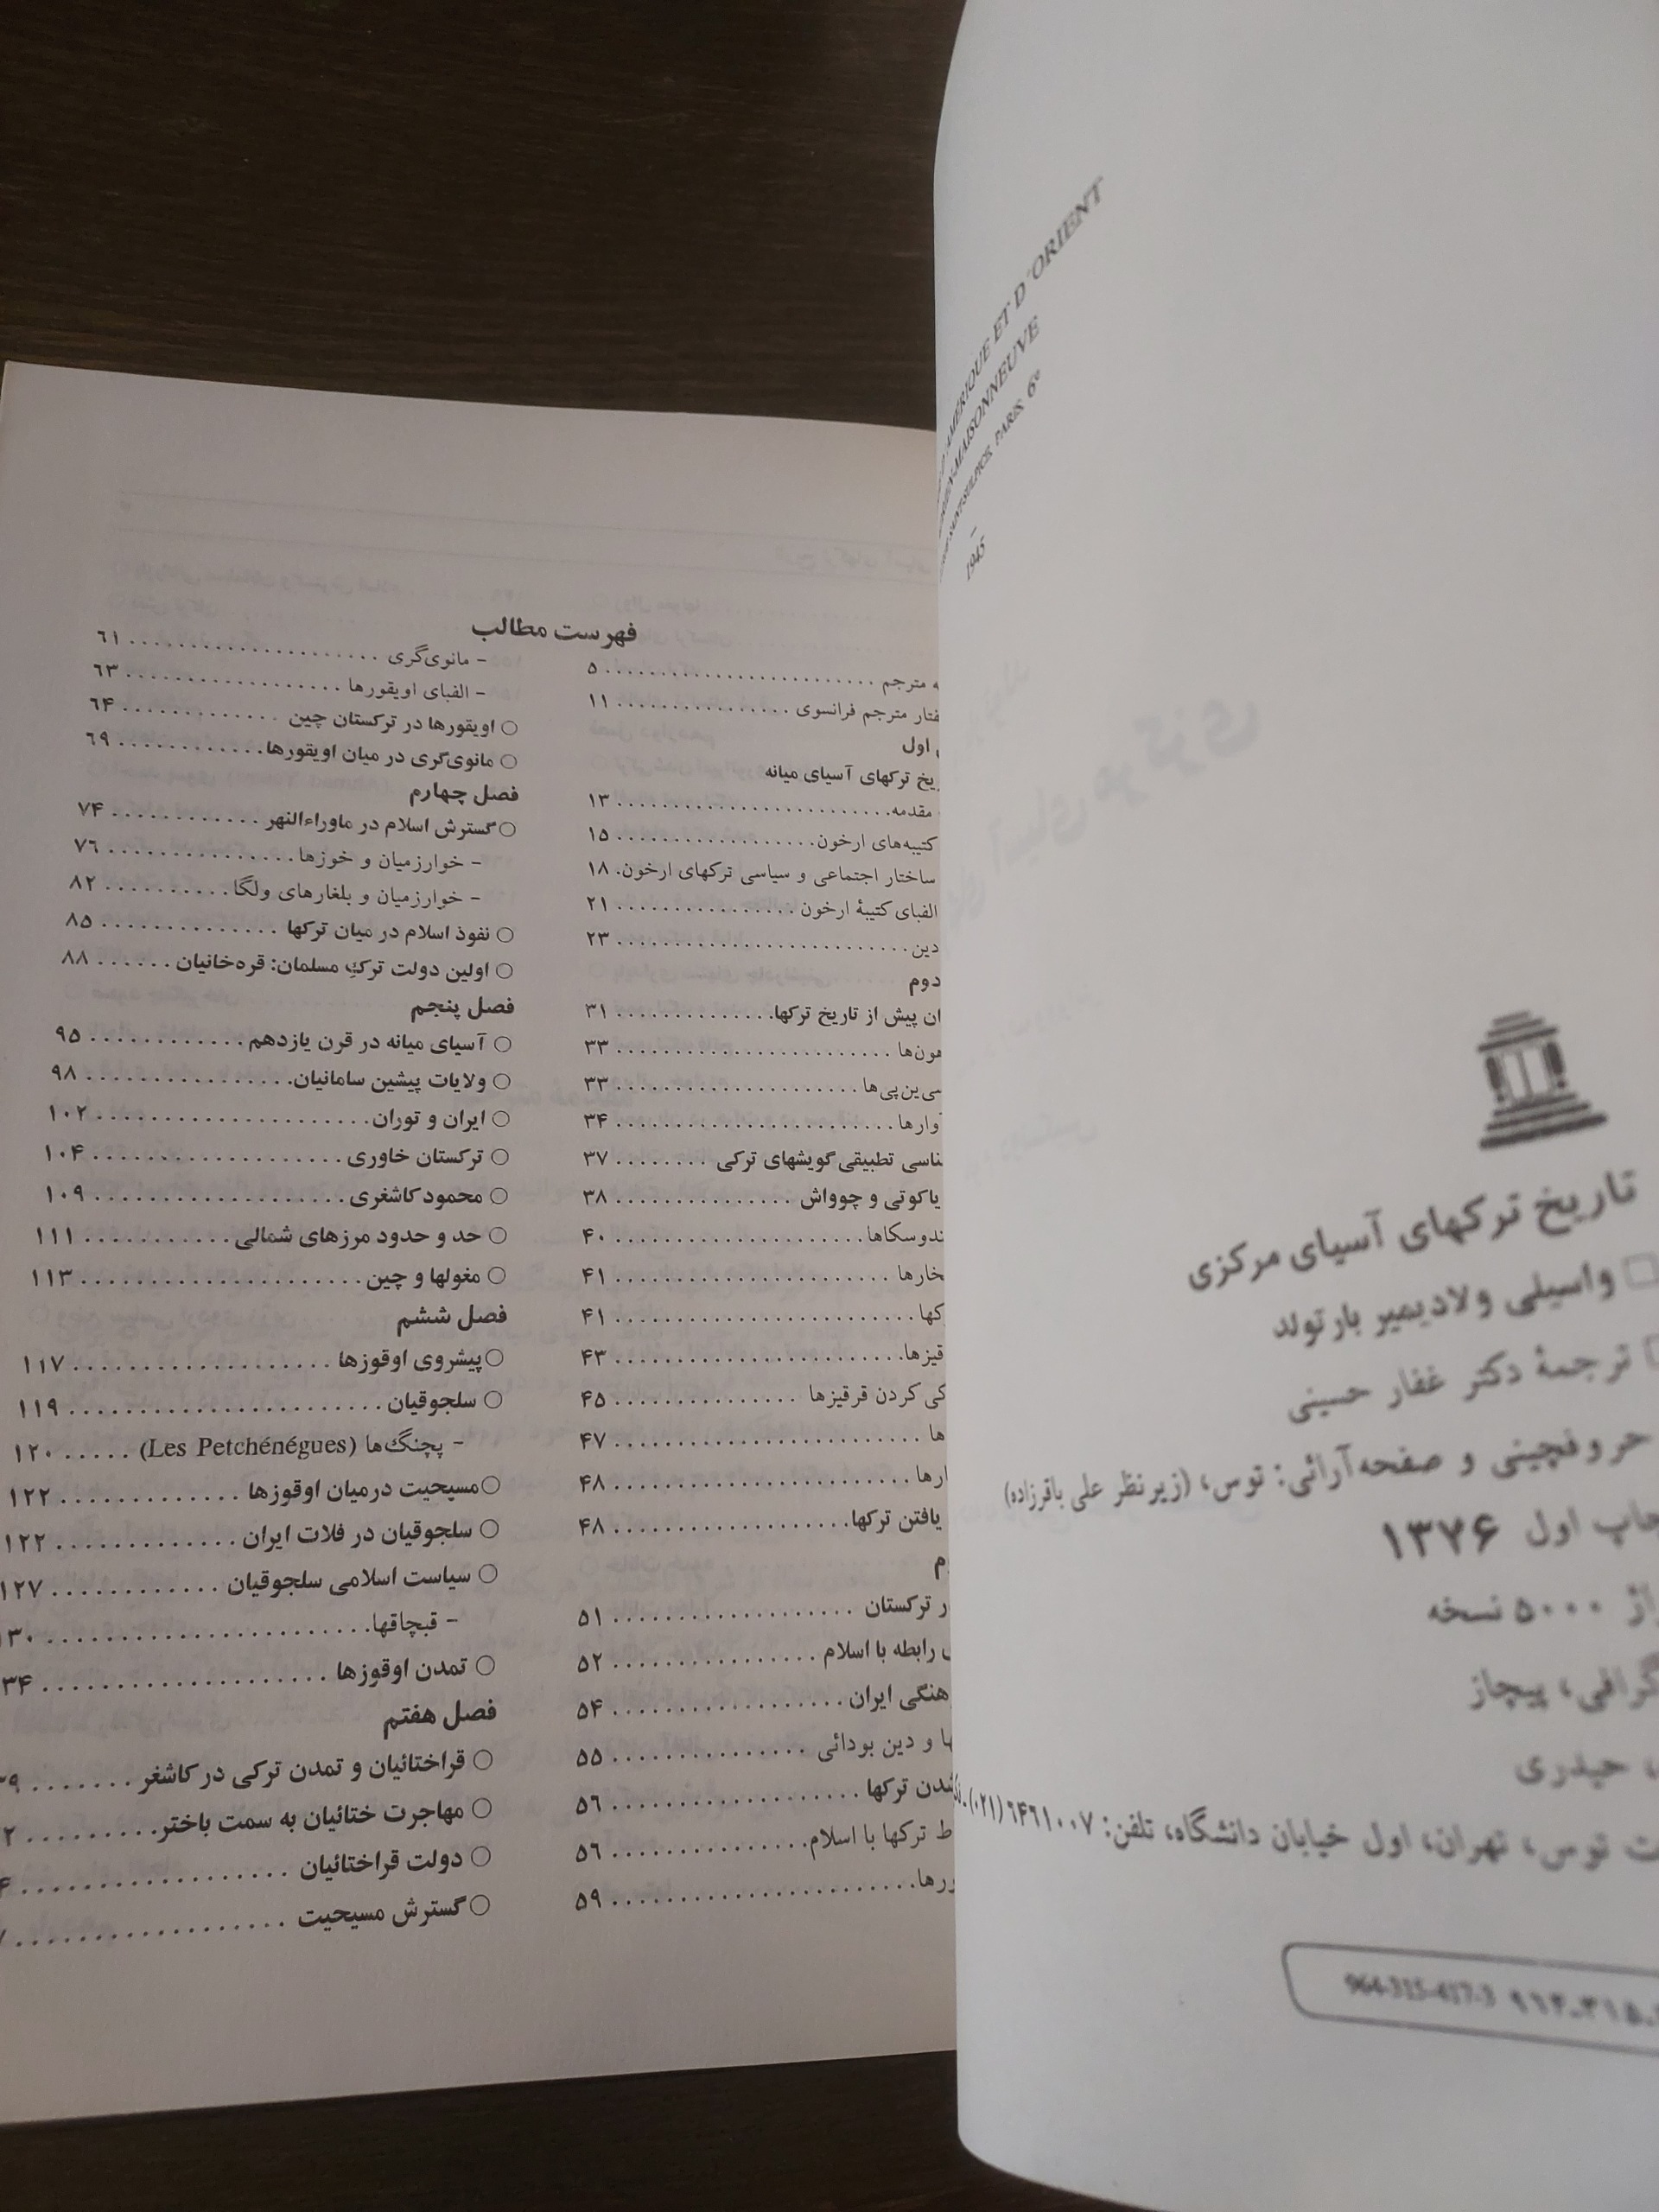 AMERIQUE ET D'ORIENT
MAISONNEUVE
PARIS, 6e
–
1945
تاریخ ترکهای آسیای مرکزی
□ واسیلی ولادیمیر بارتولد
□ ترجمهٔ دکتر غفار حسینی
حروفچینی و صفحه‌آرائی: توس، (زیرنظر علی باقرزاده)
چاپ اول ۱۳۷۶
۵۰۰۰ نسخه
پیچاز
حیدری
توس، تهران، اول خیابان دانشگاه، تلفن: ۶۴۶۱۰۰۷ (۰۲۱)
964-315-417-3
فهرست مطالب
مترجم ۵
مترجم فرانسوی ۱۱
اول
ترکهای آسیای میانه
مقدمه ۱۳
کتیبه‌های ارخون ۱۵
ساختار اجتماعی و سیاسی ترکهای ارخون. ۱۸
الفبای کتیبهٔ ارخون ۲۱
دین ۲۳
دوم
پیش از تاریخ ترکها ۳۱
هون‌ها ۳۳
سی‌ین‌پی‌ها ۳۳
آوارها ۳۴
تطبیقی گویشهای ترکی ۳۷
یاکوتی و چوواش ۳۸
۴۰
۴۱
۴۱
۴۳
کردن قرقیزها ۴۵
۴۷
۴۸
یافتن ترکها ۴۸
ترکستان ۵۱
رابطه با اسلام ۵۲
ایران ۵۴
و دین بودائی ۵۵
شدن ترکها ۵۶
ترکها با اسلام ۵۶
۵۹
- مانوی‌گری ۶۱
- الفبای اویقورها ۶۳
○ اویقورها در ترکستان چین ۶۴
○ مانوی‌گری در میان اویقورها ۶۹
فصل چهارم
○ گسترش اسلام در ماوراءالنهر ۷۴
- خوارزمیان و خوزها ۷۶
- خوارزمیان و بلغارهای ولگا ۸۲
○ نفوذ اسلام در میان ترکها ۸۵
○ اولین دولت ترکِ مسلمان: قره‌خانیان ۸۸
فصل پنجم
○ آسیای میانه در قرن یازدهم ۹۵
○ ولایات پیشین سامانیان ۹۸
○ ایران و توران ۱۰۲
○ ترکستان خاوری ۱۰۴
○ محمود کاشغری ۱۰۹
○ حد و حدود مرزهای شمالی ۱۱۱
○ مغولها و چین ۱۱۳
فصل ششم
○ پیشروی اوقوزها ۱۱۷
○ سلجوقیان ۱۱۹
- پچنگ‌ها (Les Petchénégues) ۱۲۰
○ مسیحیت درمیان اوقوزها ۱۲۲
○ سلجوقیان در فلات ایران ۱۲۲
○ سیاست اسلامی سلجوقیان ۱۲۷
- قبچاقها ۱۳۰
○ تمدن اوقوزها ۳۴
فصل هفتم
○ قراختائیان و تمدن ترکی در کاشغر
○ مهاجرت ختائیان به سمت باختر
○ دولت قراختائیان
○ گسترش مسیحیت